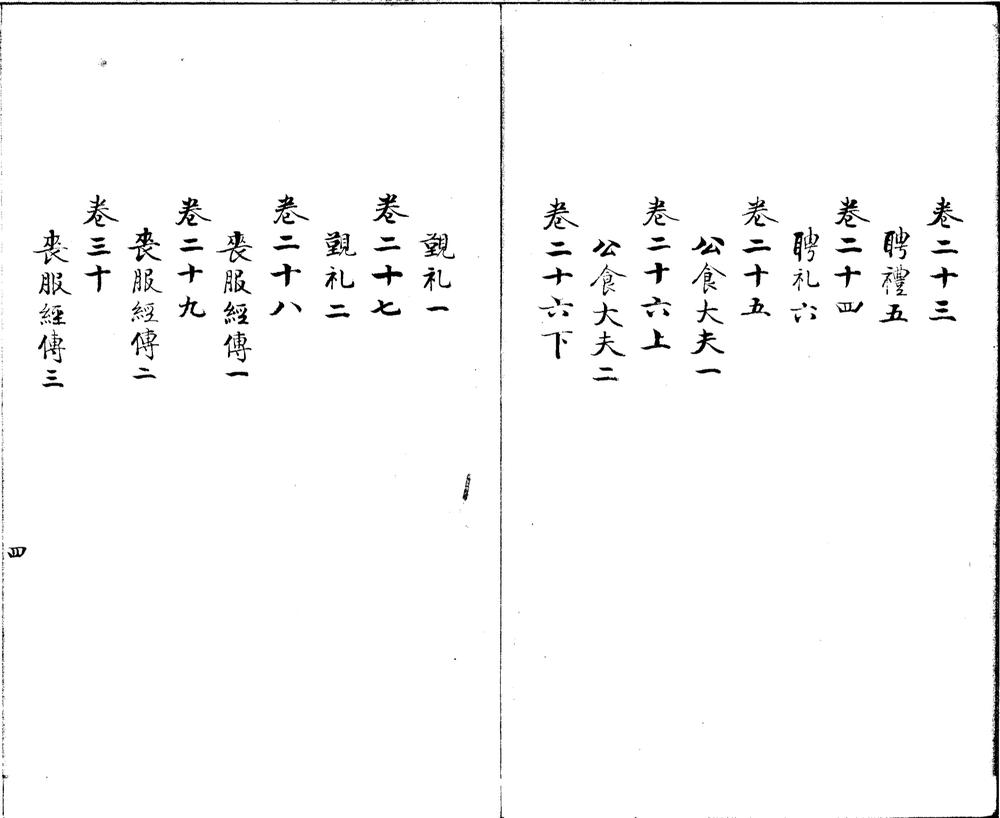 卷二十三
聘禮五
卷二十四
聘礼六
卷二十五
公食大夫一
卷二十六上
公食大夫二
卷二十六下
覲礼一
卷二十七
覲礼二
卷二十八
喪服經傳一
卷二十九
喪服經傳二
卷三十
喪服經傳三
四